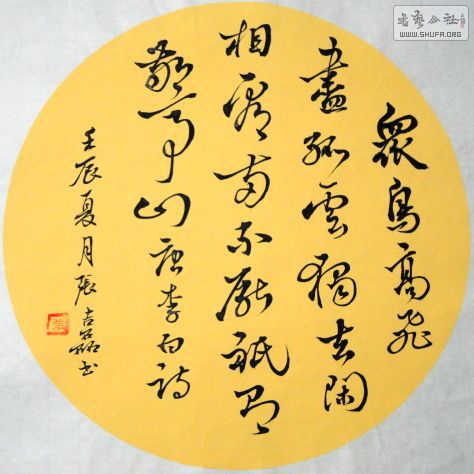 眾鳥高飛
盡孤雲獨去閑
相看兩不厭祇有
敬亭山唐李白詩
壬辰夏月張吉磊書
張
書藝公社
WWW.SHUFA.ORG